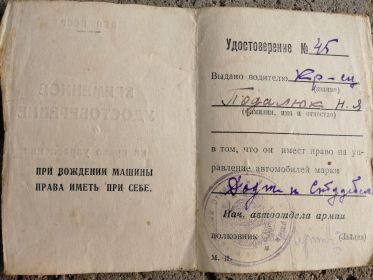 ПРИ ВОЖДЕНИИ МАШИНЫ
ПРАВА ИМЕТЬ ПРИ СЕБЕ.
Удостоверение № 45
Выдано водителю Кр-ец
(звание)
Подалюк Н.Я
(фамилия, имя и отчество)
в том, что он имеет право на уп-
равление автомобилей марки
Додж и Студебек
Нач. автоотдела армии
полковник
М. П.